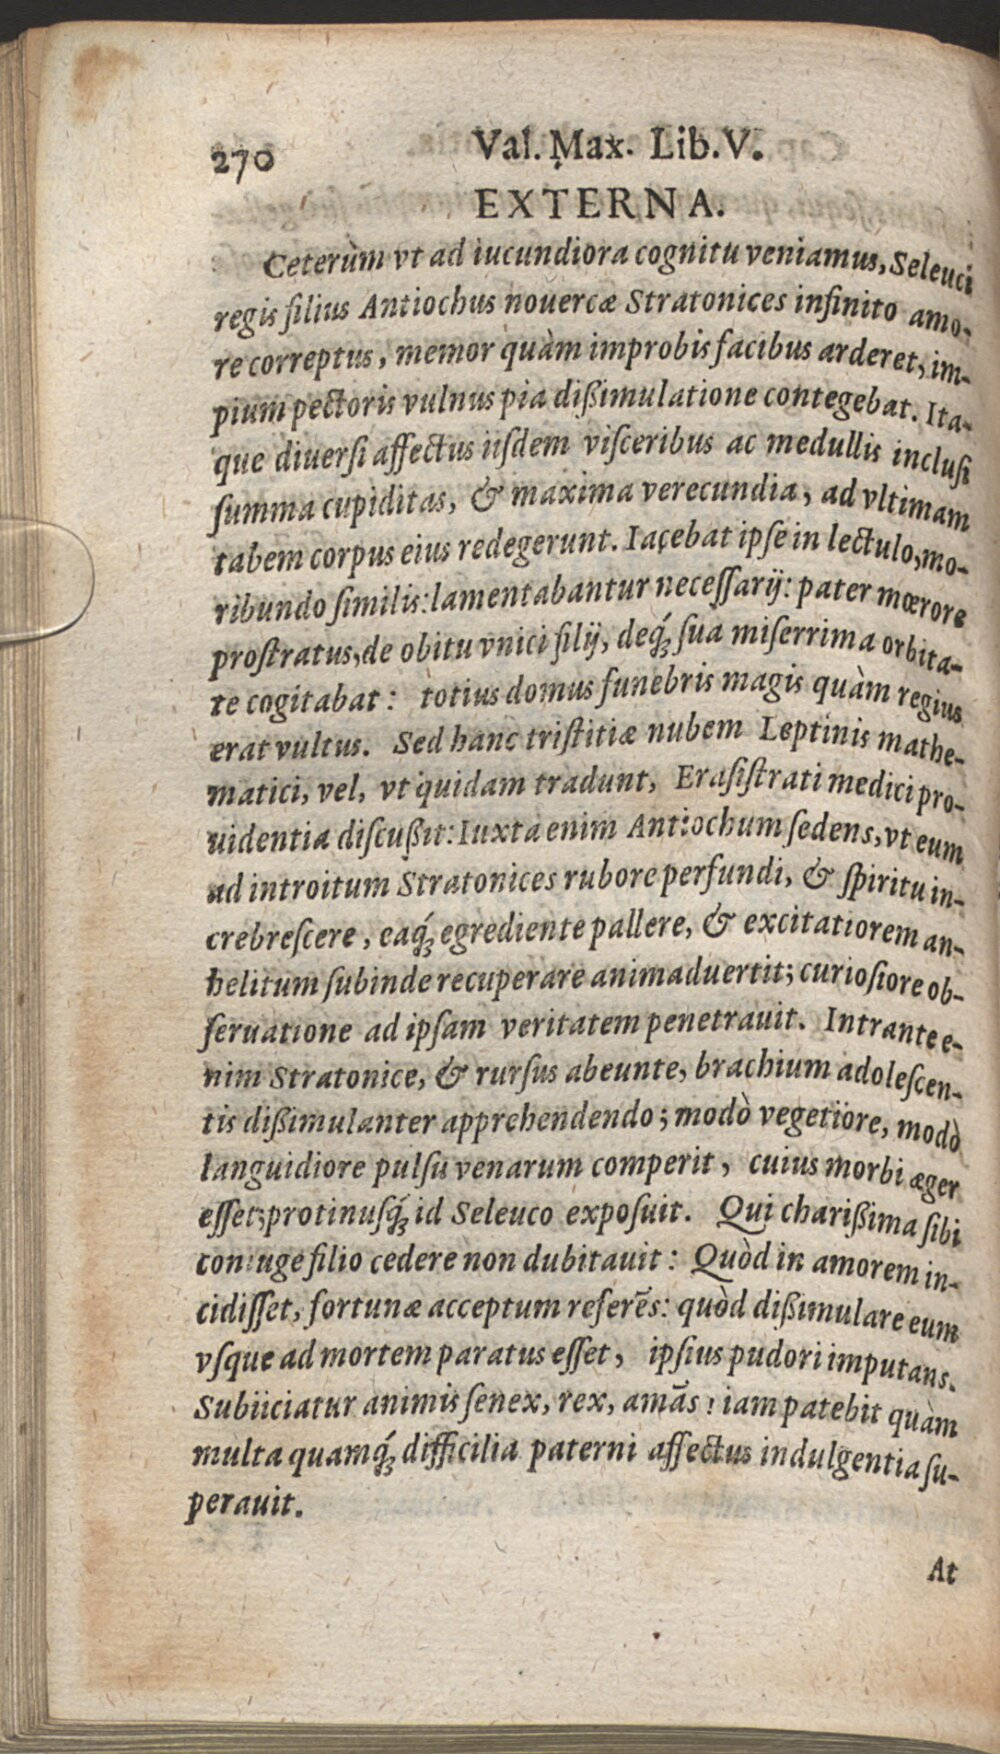 270 Val. Max. Lib. V.
EXTERNA.
Ceterùm vt ad iucundiora cognitu veniamus, Seleuci
regis filius Antiochus nouercæ Stratonices infinito amo-
re correptus, memor quàm improbis facibus arderet, im-
pium pectoris vulnus pia dißimulatione contegebat. Ita-
que diuersi affectus iisdem visceribus ac medullis inclusi
summa cupiditas, & maxima verecundia, ad vltimam
tabem corpus eius redegerunt. Iacebat ipse in lectulo, mo-
ribundo similis: lamentabantur necessarij: pater mœrore
prostratus, de obitu vnici filij, deq́; sua miserrima orbita-
te cogitabat: totius domus funebris magis quàm regius
erat vultus. Sed hanc tristitiæ nubem Leptinis mathe-
matici, vel, vt quidam tradunt, Erasistrati medici pro-
uidentia discußit: Iuxta enim Antiochum sedens, vt eum
ad introitum Stratonices rubore perfundi, & spiritu in-
crebrescere, eaq́; egrediente pallere, & excitatiorem an-
helitum subinde recuperare animaduertit; curiosiore ob-
seruatione ad ipsam veritatem penetrauit. Intrante e-
nim Stratonice, & rursus abeunte, brachium adolescen-
tis dißimulanter apprehendendo; modò vegetiore, modò
languidiore pulsu venarum comperit, cuius morbi æger
esset; protinusq́; id Seleuco exposuit. Qui charißima sibi
coniuge filio cedere non dubitauit: Quòd in amorem in-
cidisset, fortunæ acceptum referẽs: quòd dißimulare eum
vsque ad mortem paratus esset, ipsius pudori imputans.
Subiiciatur animis senex, rex, amãs: iam patebit quàm
multa quamq́; difficilia paterni affectus indulgentia su-
perauit.
At